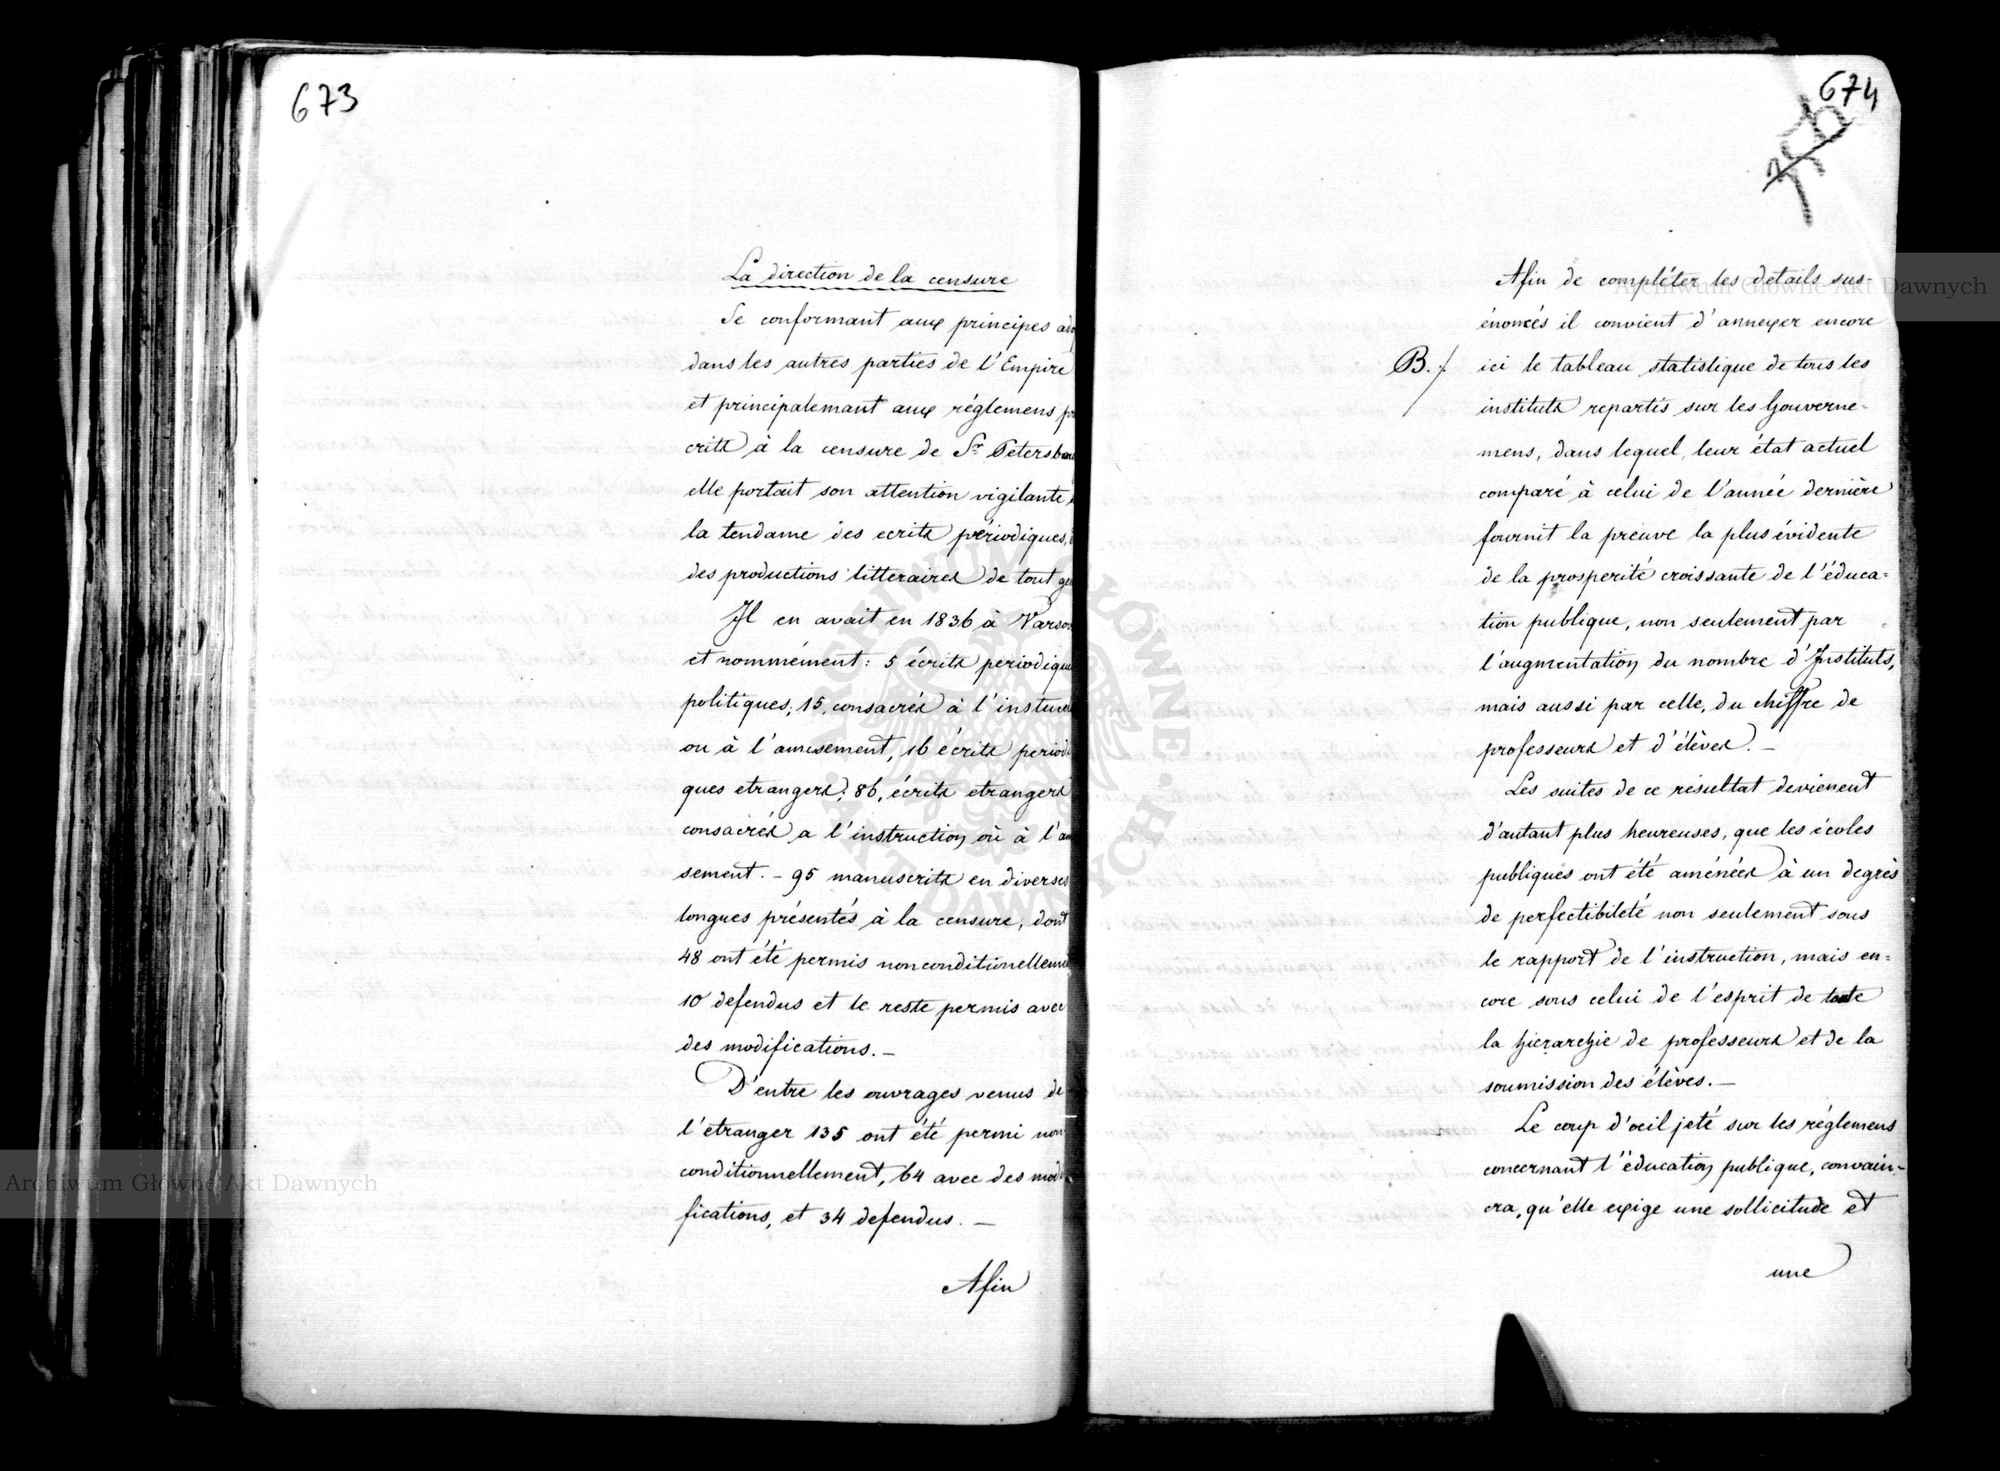 673
La direction de la censure
Se conformant aux principes ado
dans les autres parties de l'Empire
et principalemant aux réglemens pr
crits à la censure de St Petersbou
elle portait son attention vigilante
la tendame des ecrits périodiques,
des productions litteraires de tout ge
Il en avait en 1836 à Varsov
et nommément: 5 écrits periodique
politiques; 15, consacrés à l'instuct
ou à l'amusement, 16 écrits periodi
ques etrangers; 86, écrits etrangers
consacrés a l'instruction où à l'am
sement. - 95 manuscrits en diverses
langues présentés à la censure, dont
48 ont été permis nonconditionellement
10 defendus et le reste permis avec
des modifications. —
D'entre les ouvrages venus de
l'etranger 135 ont été permi non
conditionnellement, 64 avec des modi
fications, et 34 defendus. —
Afin
674
Afin de compléter les details sus-
énoncés il convient d'annexer encore
B. /. ici le tableau statistique de tous les
instituts repartis sur les Gouverne-
mens, dans lequel, leur état actuel
comparé à celui de l'année dernière
fournit la preuve la plus évidente
de la prosperité croissante de l'éduca=
tion publique, non seulement par
l'augmentation du nombre d'Instituts,
mais aussi par celle, du chiffre de
professeurs et d'élèves. —
Les suites de ce résultat devienent
d'autant plus heureuses, que les écoles
publiques ont été aménées à un degrès
de perfectibileté non seulement sous
le rapport de l'instruction, mais en=
core sous celui de l'esprit de toute
la hierarchie de professeurs et de la
soumission des élèves. —
Le coup d'oeil jeté sur les réglemens
concernant l'éducation publique, convain-
cra, qu'elle exige une sollicitude et
une
Archiwum Główne Akt Dawnych
Archiwum Główne Akt Dawnych
ARCHIWUM GŁÓWNE AKT DAWNYCH